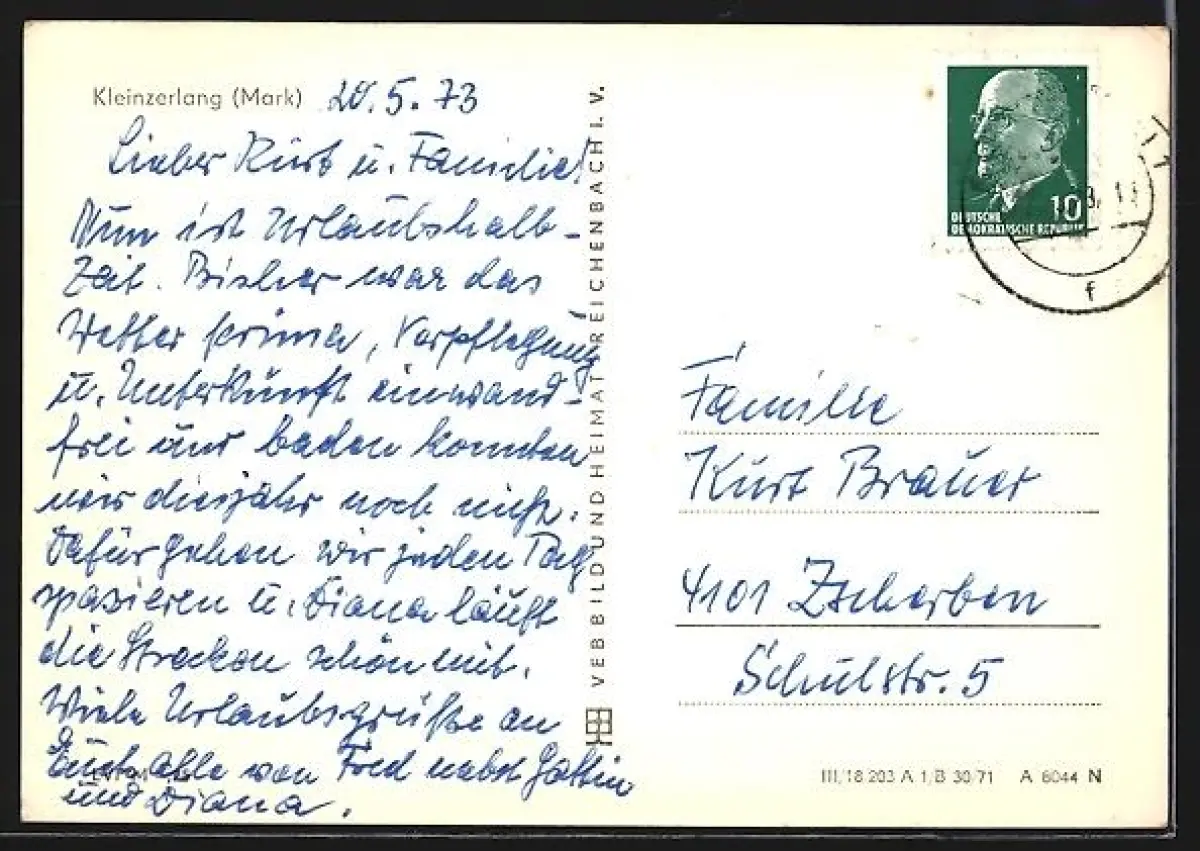 Kleinzerlang (Mark) 20.5.73
Lieber Kurt u. Familie!
Nun ist Urlaubshalb-
Zeit. Bisher war das
Wetter prima, Verpflegung
u. Unterkunft einwand-
frei nur baden konnten
wir diesjahr noch nicht.
Dafür gehen wir jeden Tag
spazieren u. Diana läuft
die Strecken schön mit.
Viele Urlaubsgrüße an
Euch alle von Fred nebst Gattin
und Diana.
VEB BILD UND HEIMAT REICHENBACH I. V.
10
DEUTSCHE
DEMOKRATISCHE REPUBLIK
f
Familie
Kurt Brauer
4101 Zscherben
Schulstr. 5
III/18 203 A 1/B 30/71 A 6044 N